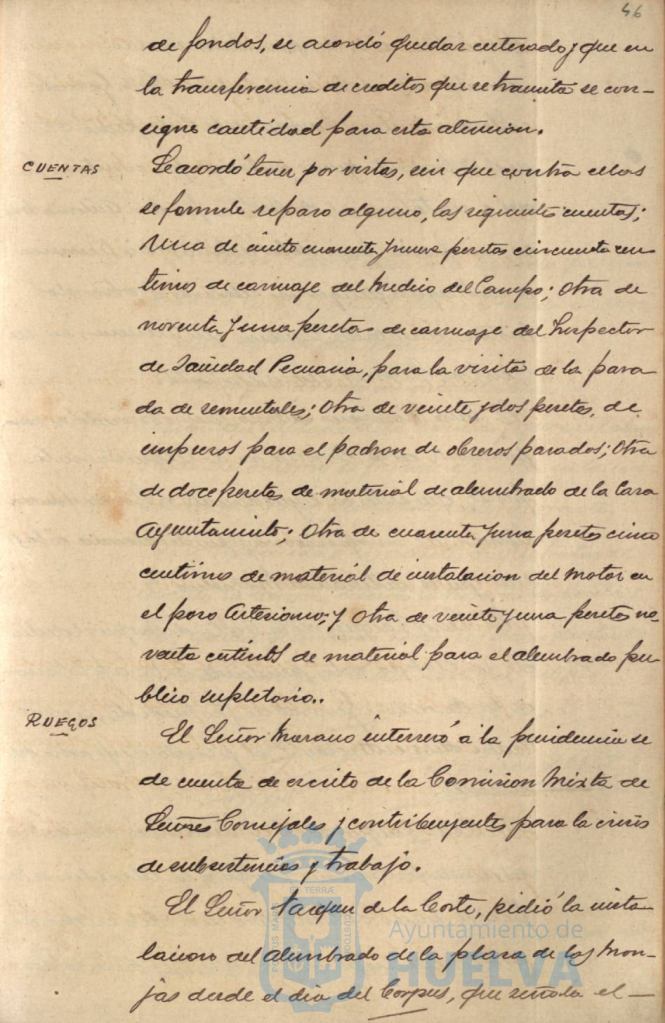 46
de fondos, se acordó quedar enterado y que en
la transferencia de creditos que se tramita se con-
signe cantidad para esta atencion.
CUENTAS
Se acordó tener por vistas, sin que contra ellas
se formule reparo alguno, las siguientes cuentas;
Una de ciento cuarenta y nueve pesetas cincuenta cen
timos de carruaje del Medico del Campo; Otra de
noventa y una pesetas de carruaje del Inspector
de Sanidad Pecuaria, para la visita de la para
da de sementales; Otra de veinte y dos pesetas, de
impresos para el padron de obreros parados; Otra
de doce pesetas de material de alumbrado de la Casa
Ayuntamiento; Otra de cuarenta y una pesetas cinco
centimos de material de instalacion del motor en
el pozo Artesiano; y Otra de veinte y una pesetas no-
venta centimos de material para el alumbrado pu
blico supletorio..
RUEGOS
El Señor Marano interesó á la presidencia se
de cuenta de escrito de la Comision Mixta de
Señores Concejales y contribuyentes para la crisis
de subsistencias y trabajo.
El Señor de la Corte, pidió la insta
lacion del alumbrado de la plaza de las Mon-
jas desde el dia del Corpus, que señala el —
Ayuntamiento de
HUELVA